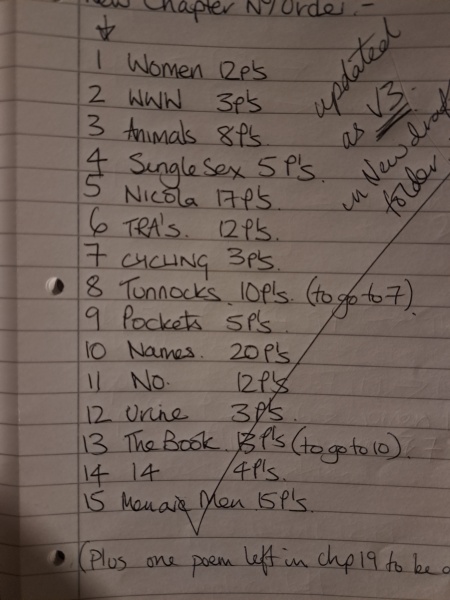 New Chapter No Order :-
1 Women 12p's
2 WWW 3p's
3 Animals 8p's.
4 Single Sex 5 P's.
5 Nicola 17p's.
6 TRA's. 12p's.
7 CYCLING 3p's.
8 Tunnocks. 10p's. (to go to 7).
9 Pockets 5p's.
10 Names. 20p's
11 No. 12p's
12 Urine 3p's.
13 The Book. 13p's (to go to 10).
14 14 4p's.
15 Men are Men 15p's.
(Plus one poem left in chp 19 to be
updated
as V3.
in New draft
folder.